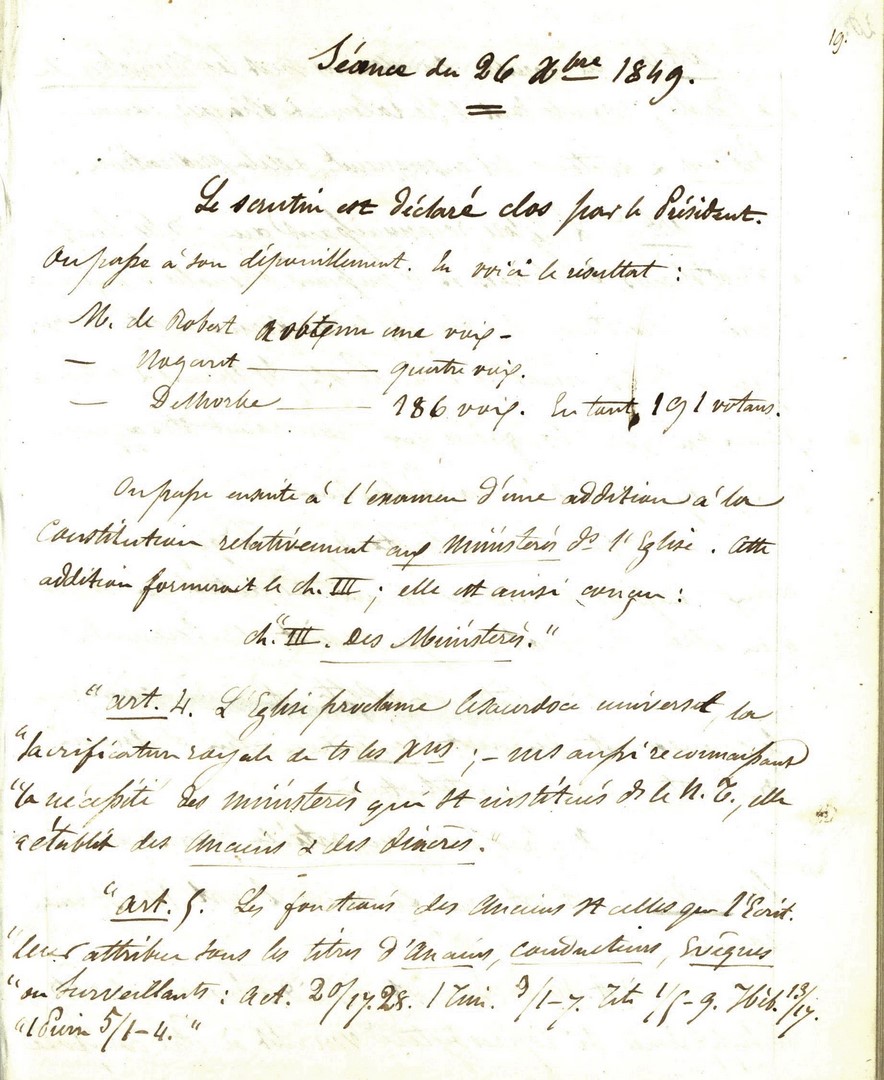 19.
Séance du 26 Xbre 1849.
Le scrutin est déclaré clos par le Président.
On passe à son dépouillement. En voici le résultat :
M. de Robert a obtenu une voix -
— Nogaret ——— quatre voix.
— Delhorbe ——— 186 voix. En tout, 191 votans.
On passe ensuite à l'examen d'une addition à la
Constitution relativement aux Ministères de l'Eglise. Cette
addition formerait le ch. III ; elle est ainsi conçue :
"ch. III. Des Ministères."
"art. 4. L'Eglise proclame le sacerdoce universel, la
"sacrificature royale de ts les Xens ; - mais aussi reconnaissant
"la nécessité des ministères qui st institués ds le N. T., elle
"établit des Anciens & des Diacres."
"art. 5. Les fonctions des Anciens st celles que l'Ecrit.
"leur attribue sous les titres d'Anciens, conducteurs, Evêques
"ou Surveillants : Act. 20/17.28. 1 Tim. 3/1-7. Tite 1/5-9. Héb. 13/17.
"1 Pierre 5/1-4."